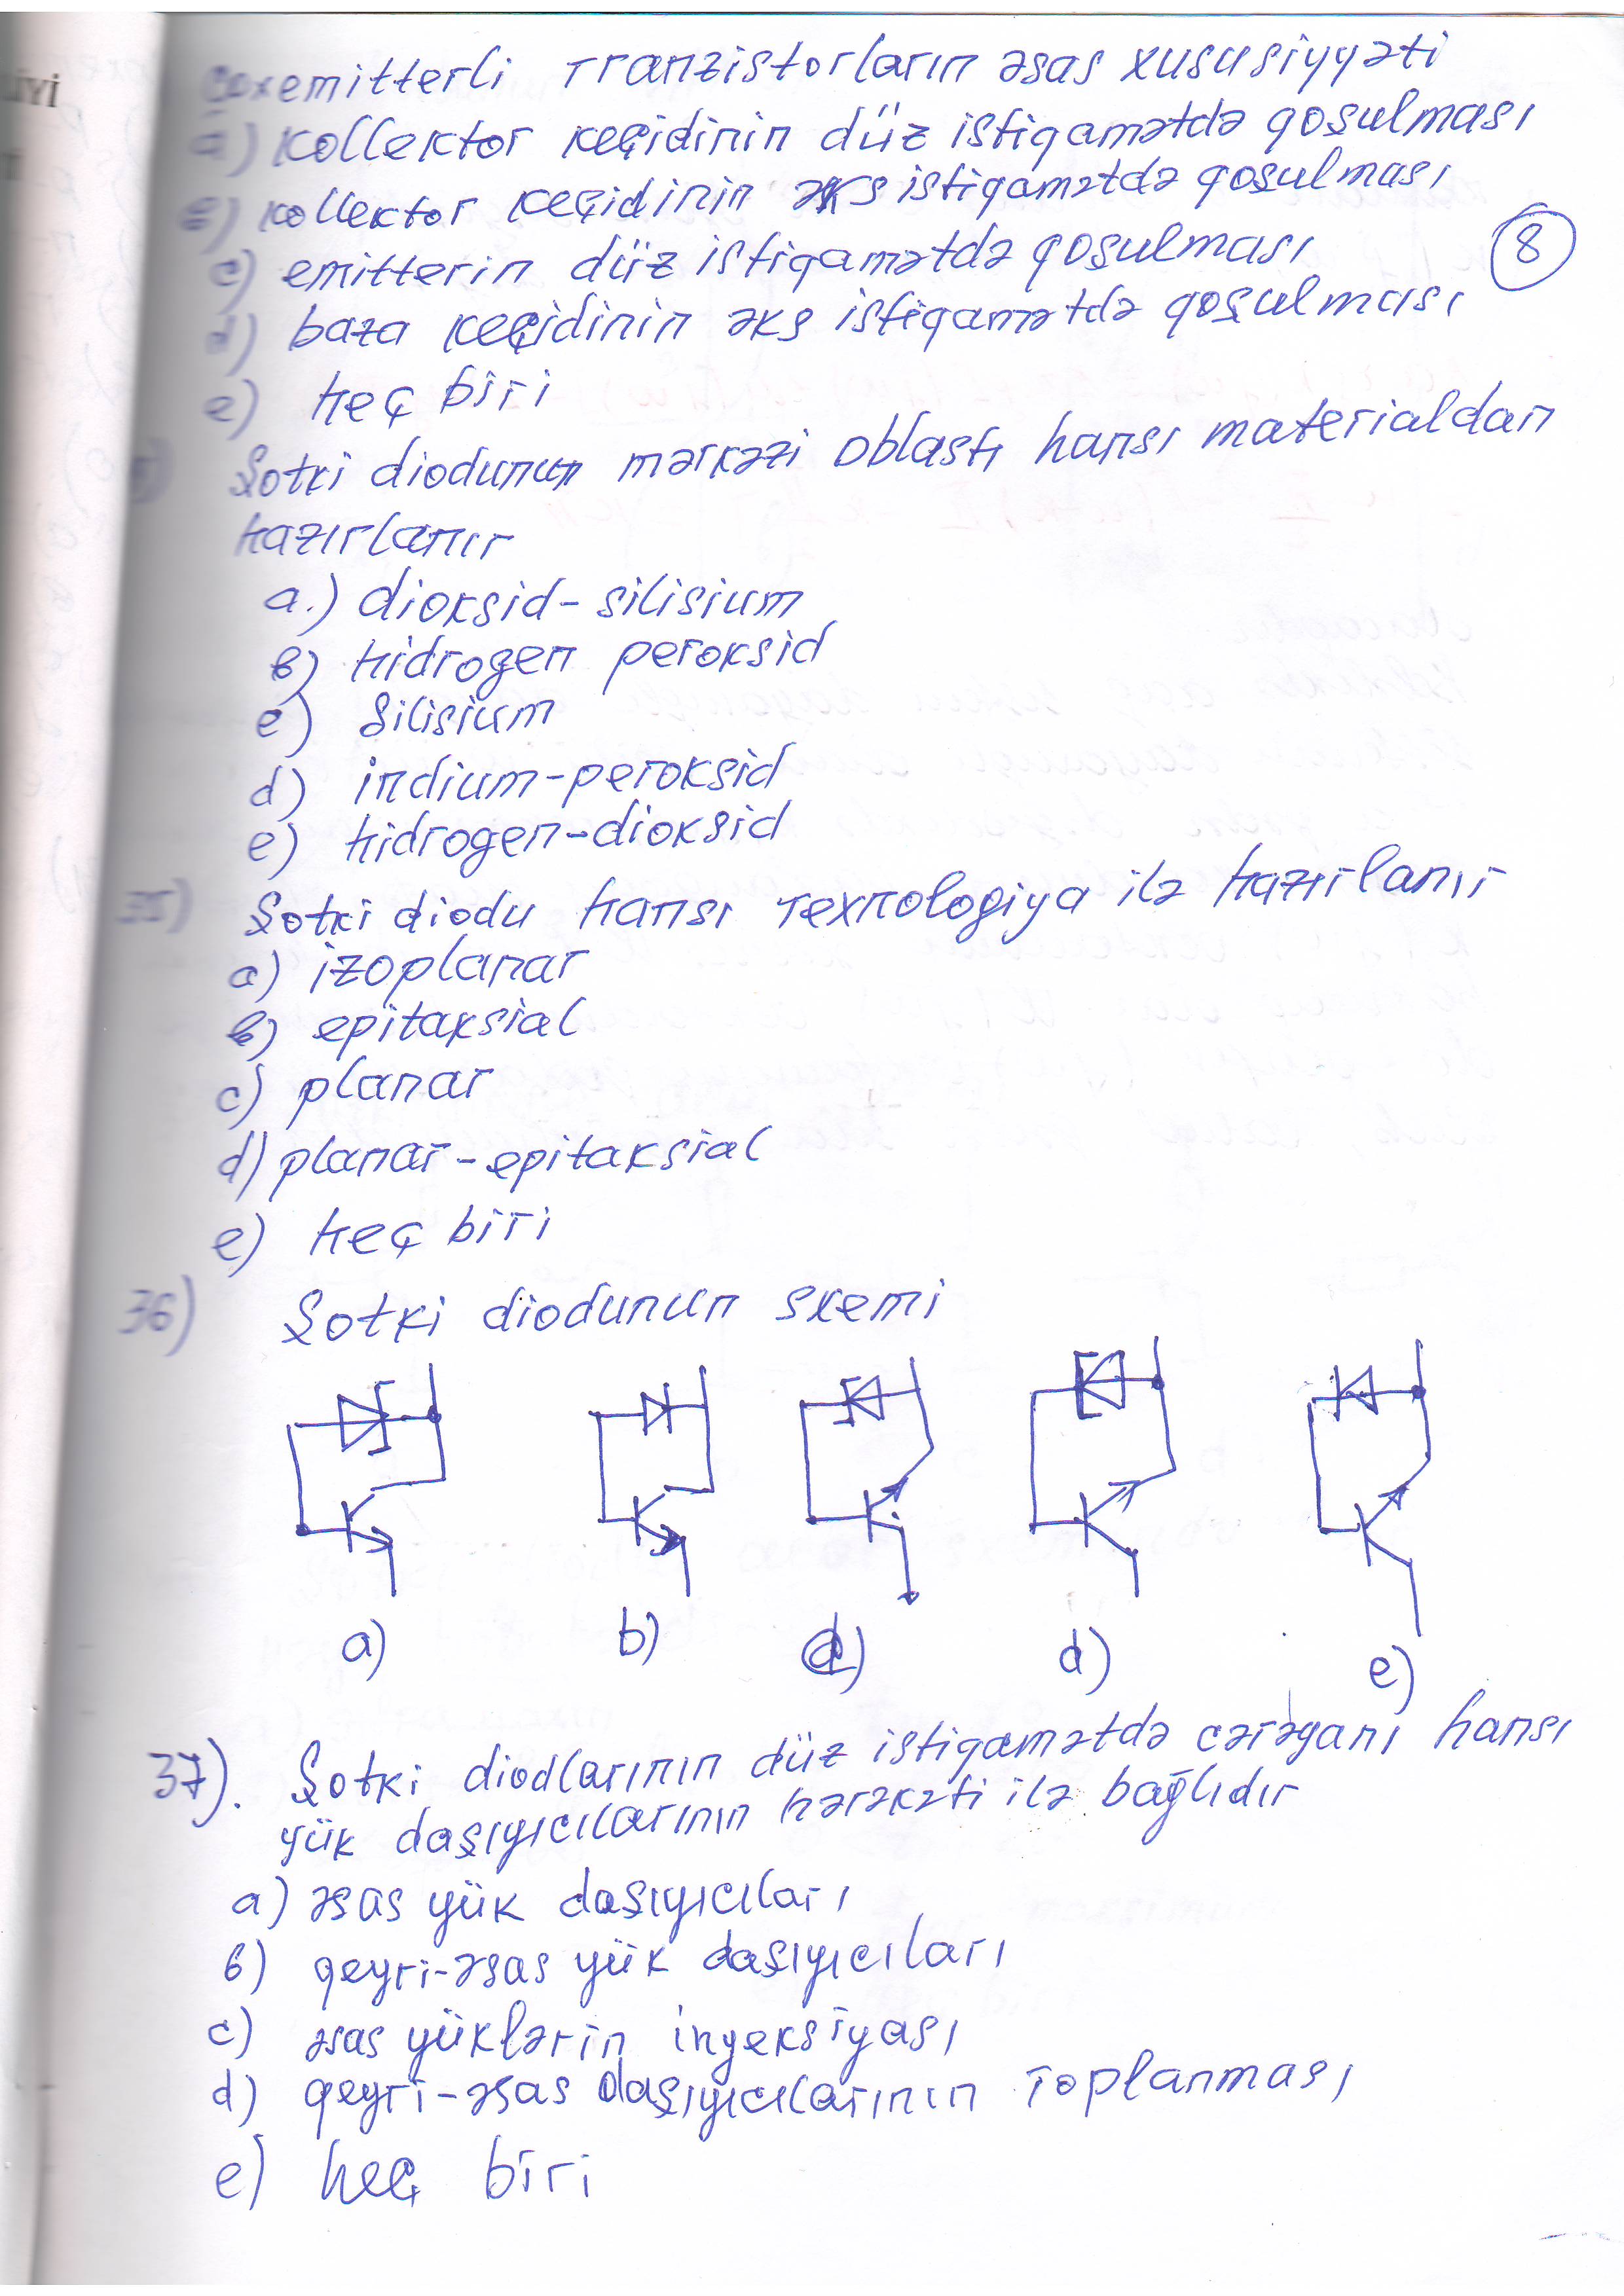 İYİ
çoxemitterli tranzistorların əsas xususiyyəti
a) kollektor keçidinin düz istiqamətdə qoşulması
в) kollektor keçidinin əks istiqamətdə qoşulması
c) emitterin düz istiqamətdə qoşulması
8
d) baza keçidinin əks istiqamətdə qoşulması
e) heç biri
Şotki diodunun mərkəzi oblastı hansı materialdan
hazırlanır
a.) dioksid-silisium
в) hidrogen peroksid
e) silisium
d) indium-peroksid
e) hidrogen-dioksid
35) Şotki diodu hansı texnologiya ilə hazırlanır
a) izoplanar
в) epitaksial
c) planar
d) planar-epitaksial
e) heç biri
36) Şotki diodunun sxemi
a) b) d) d) e)
37). Şotki diodlarının düz istiqamətdə cərəyanı hansı
yük daşıyıcılarının hərəkəti ilə bağlıdır
a) əsas yük daşıyıcıları
в) qeyri-əsas yük daşıyıcıları
c) əsas yüklərin inyeksiyası
d) qeyri-əsas daşıyıcılarının toplanması
e) heç biri